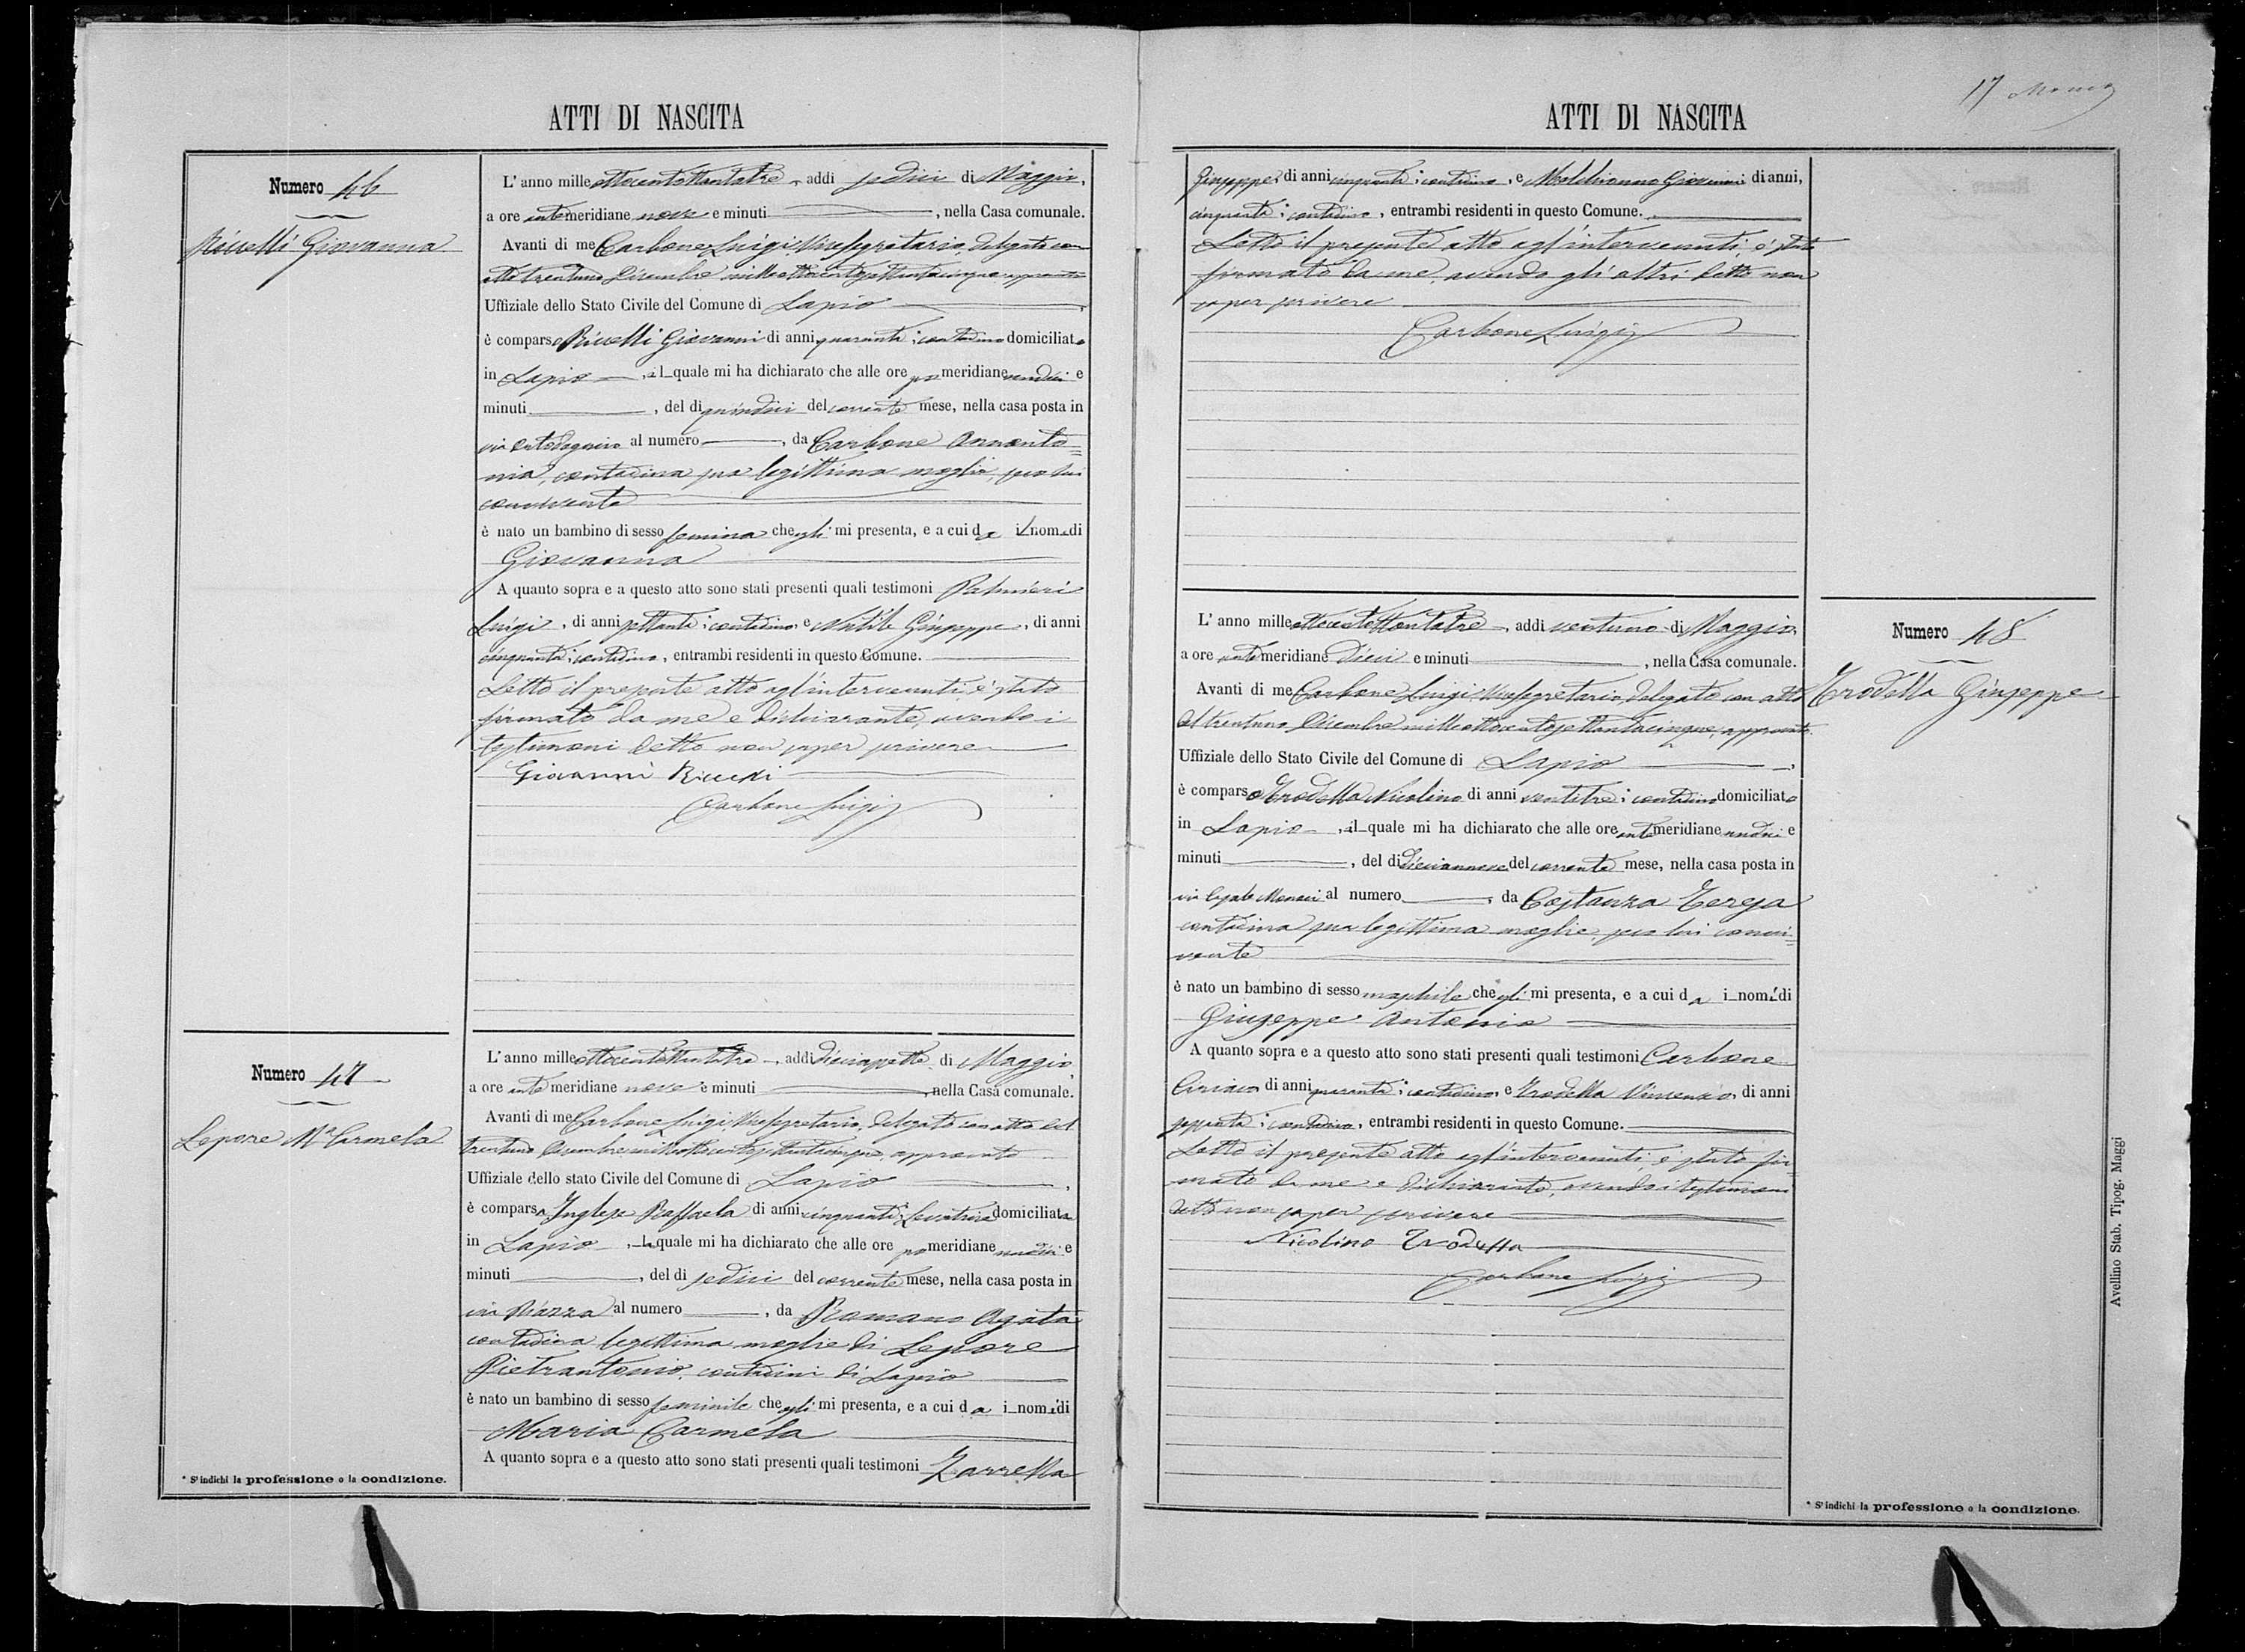 ATTI DI NASCITA
Numero 46
Giovanna
L'anno mille ottocentottantatre, addi sedici di Maggio,
a ore ante meridiane nove e minuti, nella Casa comunale.
Avanti di me Carbone Luigi Vicesegretario, delegato con
atto trentuno Dicembre milleottocentosettantacinque approvato
Uffiziale dello Stato Civile del Comune di Lapio
è comparso Giovanni di anni quaranta; contadino domiciliato
in Lapio, il quale mi ha dichiarato che alle ore po meridiane undici e
minuti, del di quindici del corrente mese, nella casa posta in
via al numero, da Carbone Annanto=
nia, contadina sua legittima moglie, seco lui
convivente
è nato un bambino di sesso femina che egli mi presenta, e a cui da il nome di
Giovanna
A quanto sopra e a questo atto sono stati presenti quali testimoni Palmieri
Luigi, di anni settanta; contadino e Giuseppe, di anni
cinquanta; contadino, entrambi residenti in questo Comune.
Letto il presente atto agl'intervenuti, è stato
firmato da me e dichiarante, avendo i
testimoni detto non saper scrivere
Giovanni
Carbone Luigi
Numero 47
Lepore Ma Carmela
L'anno mille ottocentottantatre, addi diciassette di Maggio,
a ore ante meridiane nove e minuti, nella Casa comunale.
Avanti di me Carbone Luigi Vicesegretario, delegato con atto del
trentuno Dicembre milleottocentosettantacinque, approvato
Uffiziale dello stato Civile del Comune di Lapio,
è comparsa Inglese Raffaela di anni cinquanta; Levatrice domiciliata
in Lapio, la quale mi ha dichiarato che alle ore po meridiane undici e
minuti, del di sedici del corrente mese, nella casa posta in
via Piazza al numero, da Romano Agata
contadina legittima moglie di Lepore
Pietrantonio, contadini di Lapio
è nato un bambino di sesso feminile che egli mi presenta, e a cui da i nome di
Maria Carmela
A quanto sopra e a questo atto sono stati presenti quali testimoni Zarrella
* S'indichi la professione o la condizione.
17
ATTI DI NASCITA
Giuseppe, di anni cinquanta; contadino, e Giovanni di anni,
cinquanta; contadino, entrambi residenti in questo Comune.
Letto il presente atto agl'intervenuti, è stato
firmato da me, avendo gli altri detto non
saper scrivere
Carbone Luigi
Numero 48
Trodella Giuseppe
L'anno mille ottocentottantatre, addi ventuno di Maggio,
a ore ante meridiane dieci e minuti, nella Casa comunale.
Avanti di me Carbone Luigi Vicesegretario, delegato con atto
del trentuno Dicembre milleottocentosettantacinque, approvato
Uffiziale dello Stato Civile del Comune di Lapio,
è comparso Trodella Nicolino di anni ventitre; contadino domiciliato
in Lapio, il quale mi ha dichiarato che alle ore ante meridiane undici e
minuti, del di diciannove del corrente mese, nella casa posta in
via al numero, da Costanza Teresa
contadina sua legittima moglie, seco lui convi=
vente
è nato un bambino di sesso maschile che egli mi presenta, e a cui da i nome di
Giuseppe Antonio
A quanto sopra e a questo atto sono stati presenti quali testimoni Carbone
Ciriaco di anni quaranta; contadino e Trodella Vincenzo, di anni
sessanta; contadino, entrambi residenti in questo Comune.
Letto il presente atto agl'intervenuti, è stato fir=
mato da me e dichiarante, avendo i testimoni
detto non saper scrivere
Nicolino Trodella
Carbone Luigi
* S'indichi la professione o la condizione.
Avellino Stab. Tipog. Maggi